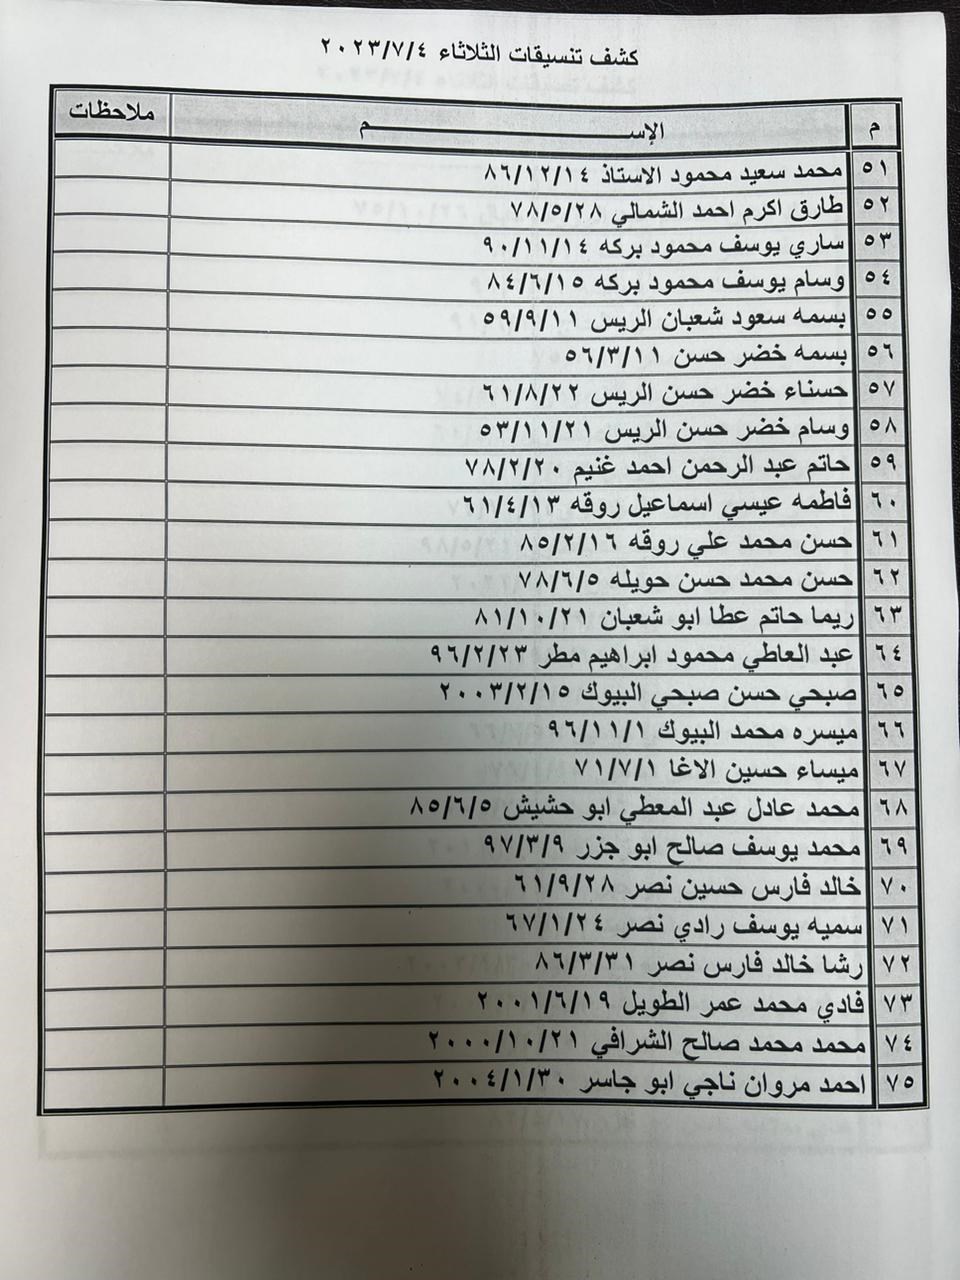 كشف تنسيقات الثلاثاء ٢٠٢٣/٧/٤
م الإســـــــــــم ملاحظات
٥١ محمد سعيد محمود الاستاذ ٨٦/١٢/١٤
٥٢ طارق اكرم احمد الشمالي ٧٨/٥/٢٨
٥٣ ساري يوسف محمود بركه ٩٠/١١/١٤
٥٤ وسام يوسف محمود بركه ٨٤/٦/١٥
٥٥ بسمه سعود شعبان الريس ٥٩/٩/١١
٥٦ بسمه خضر حسن ٥٦/٣/١١
٥٧ حسناء خضر حسن الريس ٦١/٨/٢٢
٥٨ وسام خضر حسن الريس ٥٣/١١/٢١
٥٩ حاتم عبد الرحمن احمد غنيم ٧٨/٢/٢٠
٦٠ فاطمه عيسي اسماعيل روقه ٦١/٤/١٣
٦١ حسن محمد علي روقه ٨٥/٢/١٦
٦٢ حسن محمد حسن حويله ٧٨/٦/٥
٦٣ ريما حاتم عطا ابو شعبان ٨١/١٠/٢١
٦٤ عبد العاطي محمود ابراهيم مطر ٩٦/٢/٢٣
٦٥ صبحي حسن صبحي البيوك ٢٠٠٣/٢/١٥
٦٦ ميسره محمد البيوك ٩٦/١١/١
٦٧ ميساء حسين الاغا ٧١/٧/١
٦٨ محمد عادل عبد المعطي ابو حشيش ٨٥/٦/٥
٦٩ محمد يوسف صالح ابو جزر ٩٧/٣/٩
٧٠ خالد فارس حسين نصر ٦١/٩/٢٨
٧١ سميه يوسف رادي نصر ٦٧/١/٢٤
٧٢ رشا خالد فارس نصر ٨٦/٣/٣١
٧٣ فادي محمد عمر الطويل ٢٠٠١/٦/١٩
٧٤ محمد محمد صالح الشرافي ٢٠٠٠/١٠/٢١
٧٥ احمد مروان ناجي ابو جاسر ٢٠٠٤/١/٣٠